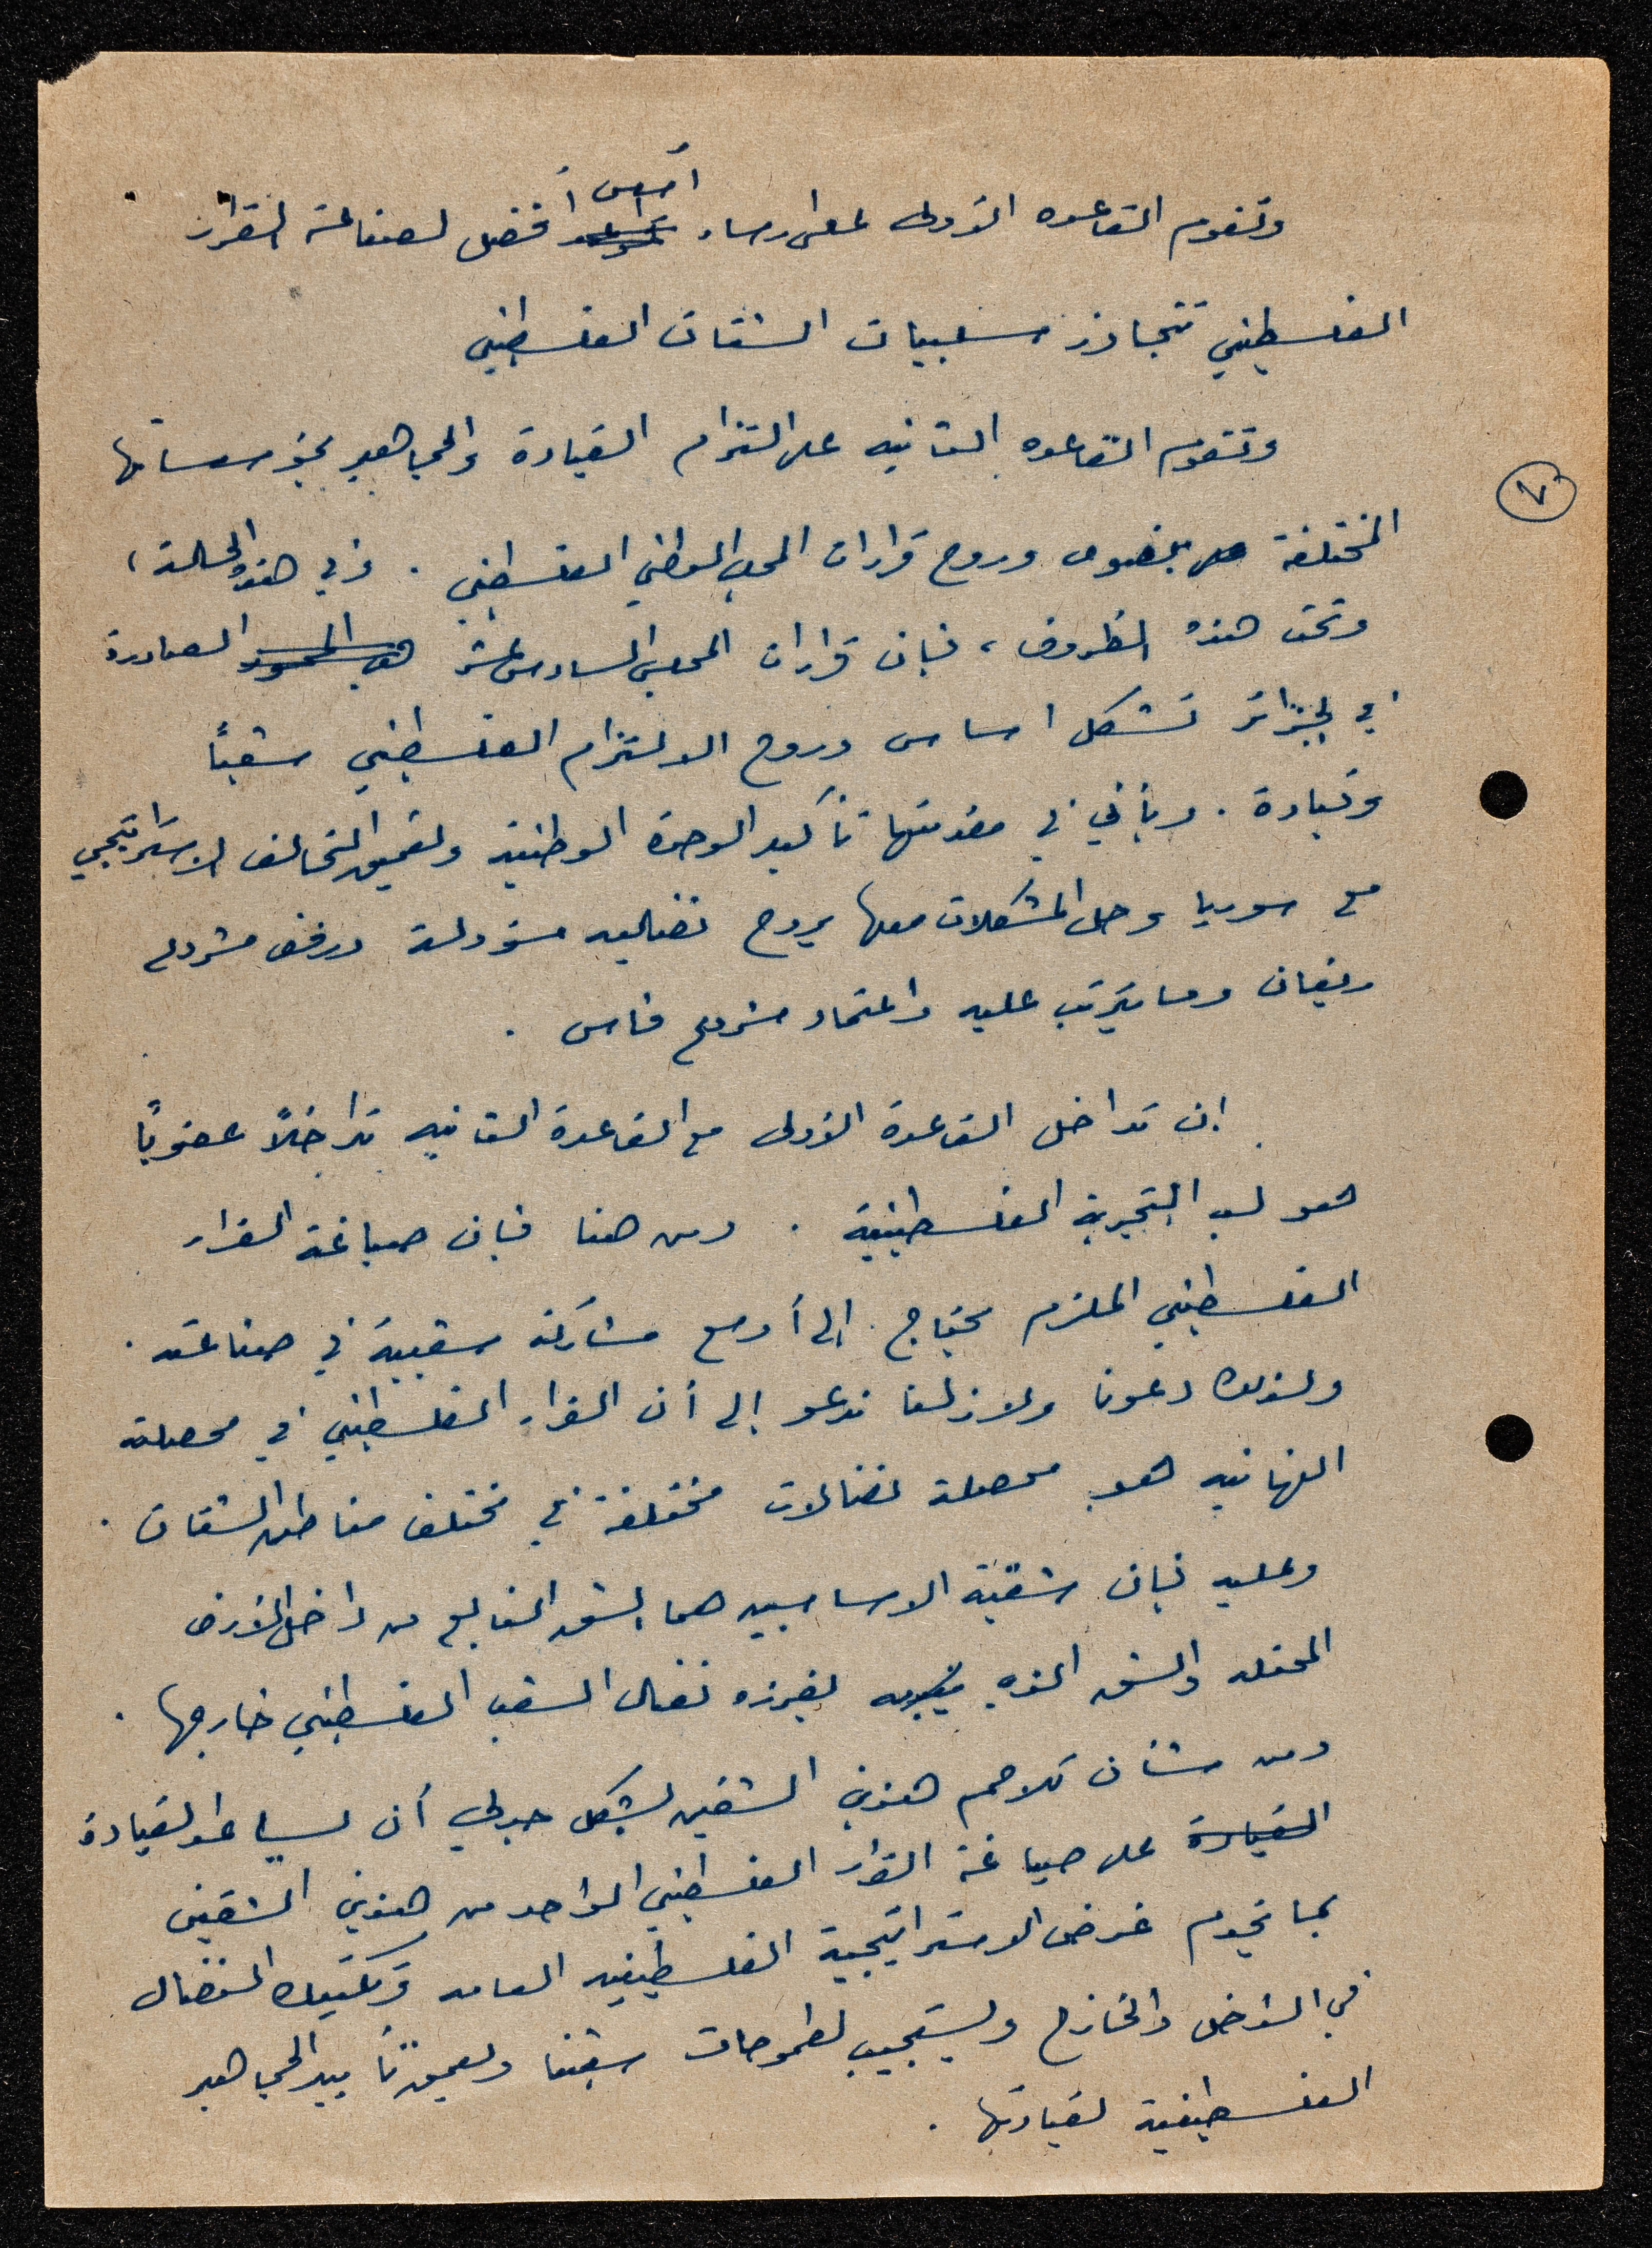 وتقوم القاعده الأولى على ارساء أسس أفضل لصناعة القرار
الفلسطيني تتجاوز سلبيات الشتات الفلسطيني
وتقوم القاعده الثانيه على التزام القيادة والجماهير بمؤسساتها
٧
المختلفة بنصوص وروح قرارات المجلس الوطني الفلسطيني . وفي هذه الحالة ،
وتحت هذه الظروف ، فإن قرارات المجلس السادس عشر الصادرة
في الجزائر تشكل اساس وروح الالتزام الفلسطيني شعباً
وقيادة . ويأتي في مقدمتها تأكيد الوحدة الوطنية وتعميق التحالف الاستراتيجي
مع سوريا وحل المشكلات معها بروح نضاليه مسؤولة ورفض مشروع
ريغان وما يترتب عليه واعتماد مشروع فاس .
إن تداخل القاعدة الأولى مع القاعدة الثانيه تداخلاً عضوياً
هو لب التجربة الفلسطينية . ومن هنا فإن صياغة القرار
الفلسطيني الملزم يحتاج إلى أوسع مشاركة شعبية في صناعته .
ولذلك دعونا ولا زلنا ندعو إلى أن القرار الفلسطيني في محصلته
النهائيه هو محصلة نضالات مختلفة في مختلف مناطق الشتات .
وعليه فإن شقيه الاساسيين هما الشق النابع من داخل الأرض
المحتله والشق الذي يفرزه نضال الشعب الفلسطيني خارجها .
ومن شأن تلاحم هذين الشقين بشكل جدلي أن يساعد القيادة
القيادة على صياغة القرار الفلسطيني الواحد من هذين الشقين
بما يخدم غرض الاستراتيجية الفلسطينيه العامه وتكتيك النضال
في الداخل والخارج ويستجيب لطموحات شعبنا وتعميق تأييد الجماهير
الفلسطينية لقيادتها .